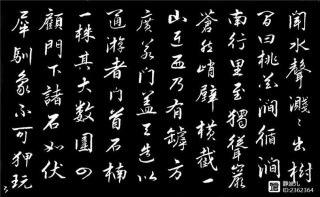 聞水聲濺濺出樹
間曰桃花澗循澗
南行里至獨聳巖
蒼然峭壁橫截一
山正西乃有罅方
廣若門蓋天造以
通遊者門首石楠
一株其大數圍回
顧門下諸石如伏
犀馴象不可狎玩
ID:2162364